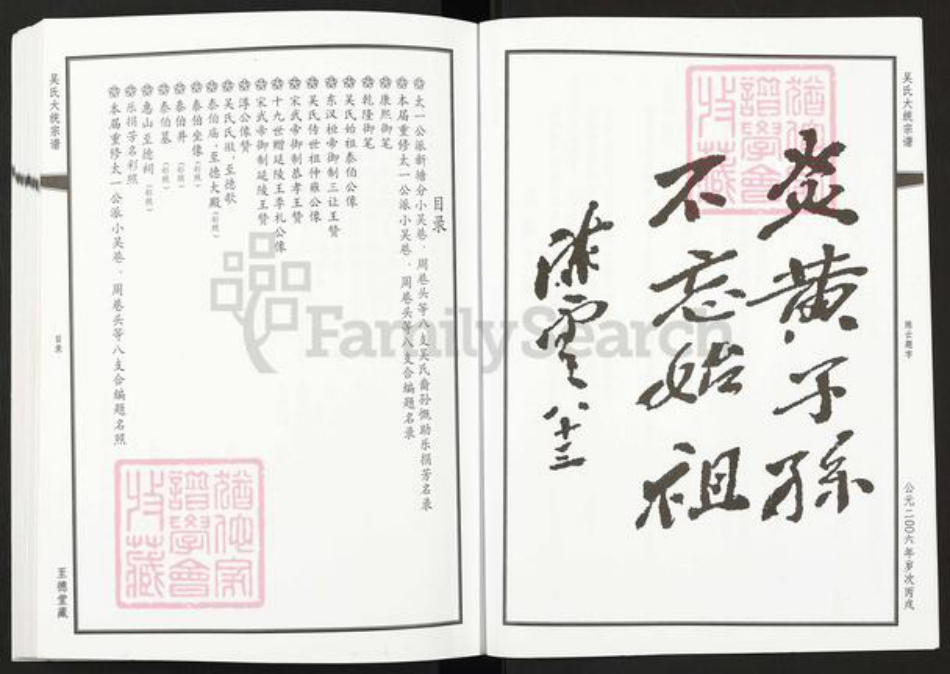 吴氏大统宗谱
陈云题字
公元二00六年岁次丙戌
炎黄子孙
不忘始祖
陈云八十三
猶他家譜學會收藏
FamilySearch
目录
太一公派新塘分小吴巷、周巷头等八支吴氏裔孙慨助乐捐芳名录
本届重修太一公派小吴巷、周巷头等八支合编题名录
康熙御笔
乾隆御笔
吴氏始祖泰伯公像
东汉桓帝御制三让王赞
吴氏传世祖仲雍公像
宋武帝御制恭孝王赞
十九世赠延陵王季札公像
宋武帝御制延陵王赞
淳公像赞
吴氏氏徽、至德歌
泰伯庙、至德大殿(彩照)
泰伯坐像(彩照)
泰伯井(彩照)
泰伯墓(彩照)
惠山至德祠(彩照)
乐捐芳名彩照
本届重修太一公派小吴巷、周巷头等八支合编题名照
猶他家譜學會收藏
吴氏大统宗谱
目录
至德堂藏